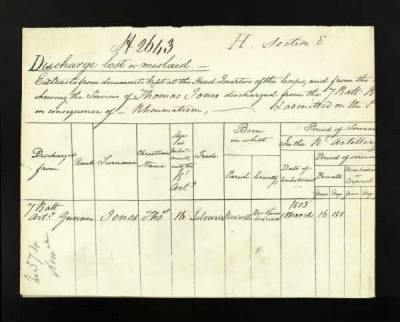 H 2643
H. Section 8
Discharge lost or mislaid —
Extracts from documents kept at the Head Quarters of the Corps, and from the
shewing the Service of Thomas Jones discharged from the 7 Batt. R
in consequence of — Rheumatism, — Is admitted on the
Discharged from
Rank
Surname
Christian Name
Age
Enlistment into the Rl. Arty
Trade
Born in what
Parish
County
Period of Service
In the Rl. Artillery
Date of Enlistment
Period of service
Privates
Bombardier or Corporal
Years Days
Years Days
7 Batt Arty.
Gunner
Jones
Thos.
16
Labourer
Newcastle
1803 March
16
181
2574